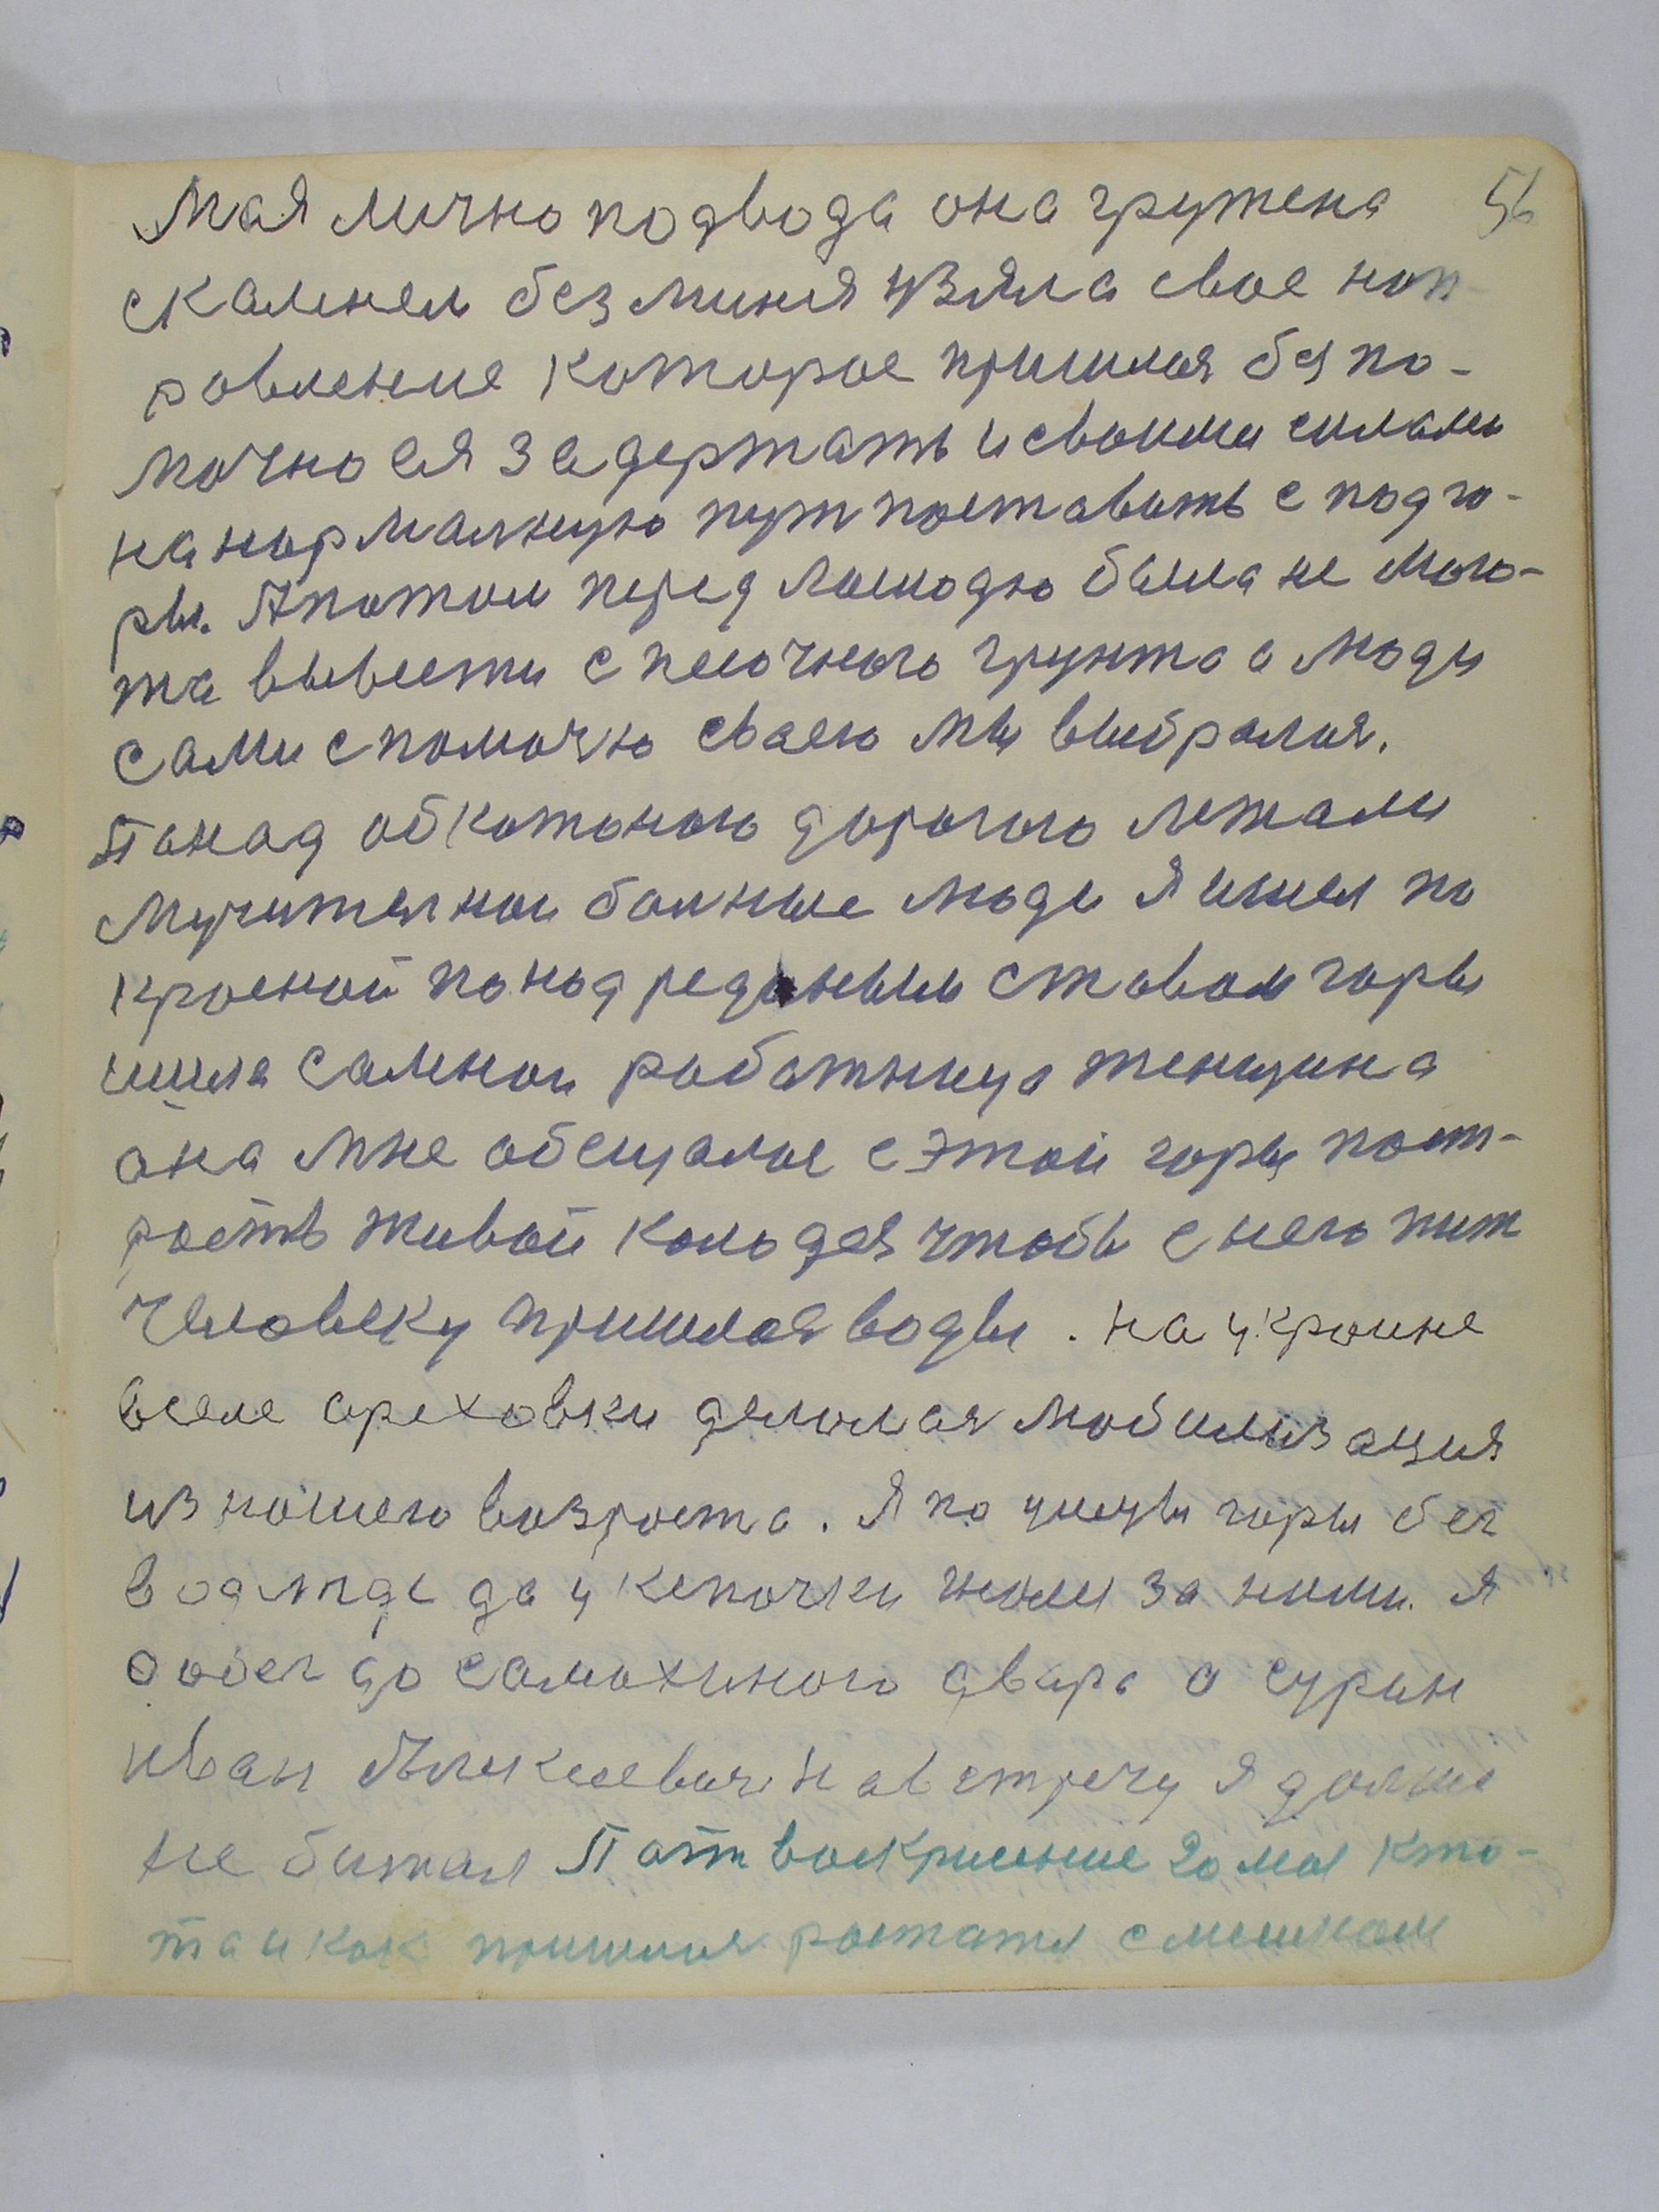 56
Мая лично подвода она гружена
скамнем без миня узяла свое нап-
равление которое пришлоя бу по-
мочно ея задержать и своими силами
на нормалную пут поставить с подго-
ры. А потом перед лошодю была не мото-
та вывести с песочного грунта а люди
сами с помочю сваею мы выбралися.
Панад обкатоною дорогою лежали
мучителнои болные люди я ишел по
красной по над редонным ставом горы
ишла самною работница женщина
она мне обещалое с этой горы пост-
роеть живой колодез чтобы с него пит
человеку пришлоя воды. на украине
вселе ореховки делалоя мобилизация
из ношего возроста. Я по улецы горы бег
в одежде да у кепочки гнолы за ними. я
добег до Самохиного двара а сурин
иван Аликсеевич навстречу я долше
не бижал Пат воскрисение 20 мая кто-
та и как пришлоя ростатя с мешком